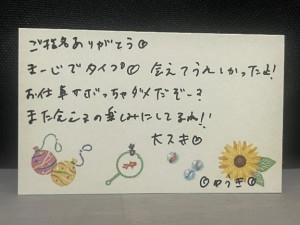 ご指名ありがとう♡
まーじでタイプ♡ 会えてうれしかったよ!
お仕事サボっちゃダメだぞー?
また会えるの楽しみにしてるね!!
大スキ♡
♡ゆうき♡